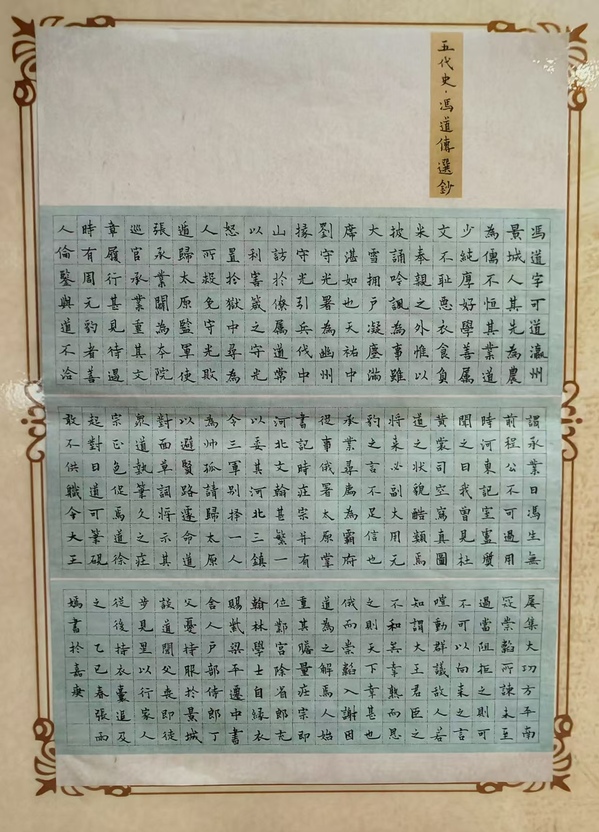 五代史·馮道傳選鈔
馮道字可道瀛州
景城人其先為農
為儒不恒其業道
少純厚好學善屬
文不恥惡衣食負
米奉親之外惟以
披誦吟諷為事雖
大雪擁戶凝塵滿
席湛如也天祐中
劉守光署為幽州
掾守光引兵伐中
山訪於僚屬道常
以利害箴之守光
怒置於獄中尋為
人所救免守光敗
遁歸太原監軍使
張承業闢為本院
巡官承業重其文
章履行甚見待遇
時有周元豹者善
人倫鑒與道不洽
謂承業曰馮生無
前程公不可過用
時河東記室盧質
聞之曰我曾見杜
黃裳司空寫真圖
道之狀貌酷類焉
將來必副大用元
豹之言不足信也
承業尋薦為霸府
從事俄署太原掌
書記時莊宗并有
河北文翰甚繁一
以委其河北三鎮
令三軍別擇一人
為帥孤請歸太原
以避賢路遽命道
對面草詞將示其
眾道執筆久之莊
宗正色促焉道徐
起對曰道可筆硯
敢不供職今大王
屢集大功方平南
寇崇韜所諫未至
過當阻拒之則可
不可以向來之言
喧動群議敵人若
知謂大王君臣之
不和矣幸熟而思
之則天下幸甚也
俄而崇韜入謝因
道為之解焉人始
重其膽量莊宗即
位鄴宮除省郎充
翰林學士自綠衣
賜紫梁平遷中書
舍人戶部侍郎丁
父憂持服於景城
道聞父喪即徒
步見星以行家人
從後持衣囊道及
之 乙巳春張雨
嫣書於嘉庚